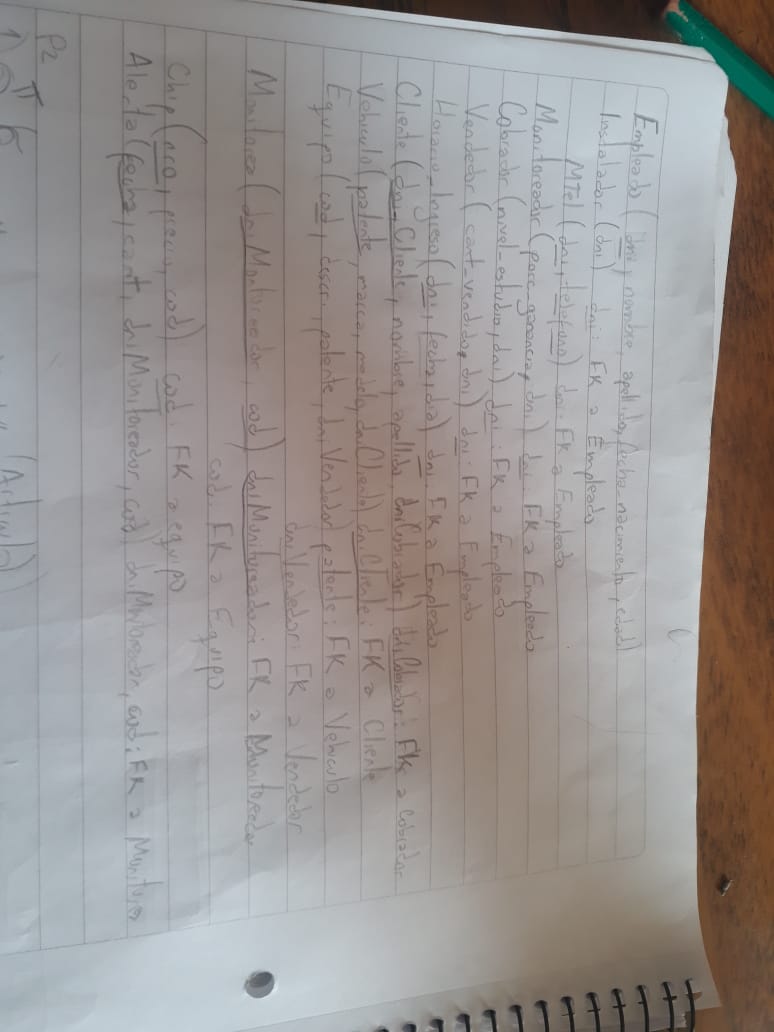 Empleado (dni, nombre, apellido, fecha-nacimiento, edad)
Instalador (dni) dni: FK a Empleado
MTel (dni, telefono) dni: FK a Empleado
Monitoreador (porc-ganancia, dni) dni: FK a Empleado
Cobrador (nivel-estudio, dni) dni: FK a Empleado
Vendedor (cant-vendido, dni) dni: FK a Empleado
Horario-Ingreso (dni, fecha, ) dni: FK a Empleado
Cliente (dni-Cliente, nombre, apellido, dniCobrador) dniCobrador: FK a Cobrador
Vehiculo (patente, marca, modelo, dniCliente) dniCliente: FK a Cliente
Equipo (cod, descr, patente, dniVendedor) patente: FK a Vehiculo
dniVendedor: FK a Vendedor
Monitorea (dniMonitoreador, cod) dniMonitoreador: FK a Monitoreador
cod: FK a Equipo
Chip (nro, precio, cod) cod: FK a equipo
Alerta (fecha, cant, dniMonitoreador, cod) dniMonitoreador, cod: FK a Monitorea
P2
1) π
(Articulo)